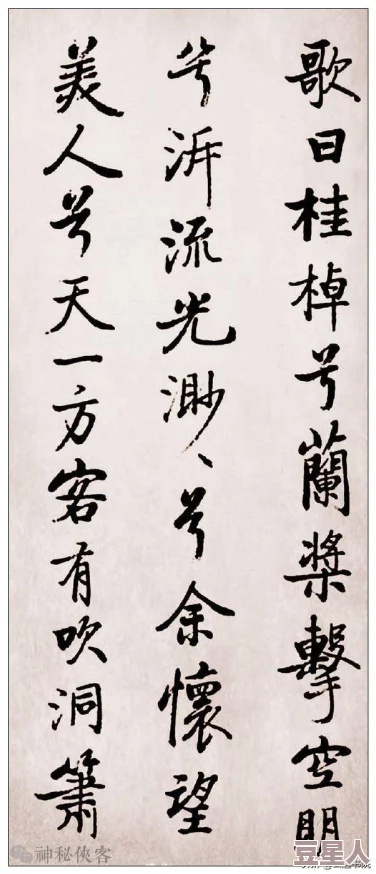 歌曰桂棹兮蘭槳擊空明
兮泝流光渺〻兮余懷望
美人兮天一方客有吹洞簫
神秘俠客
豆星人